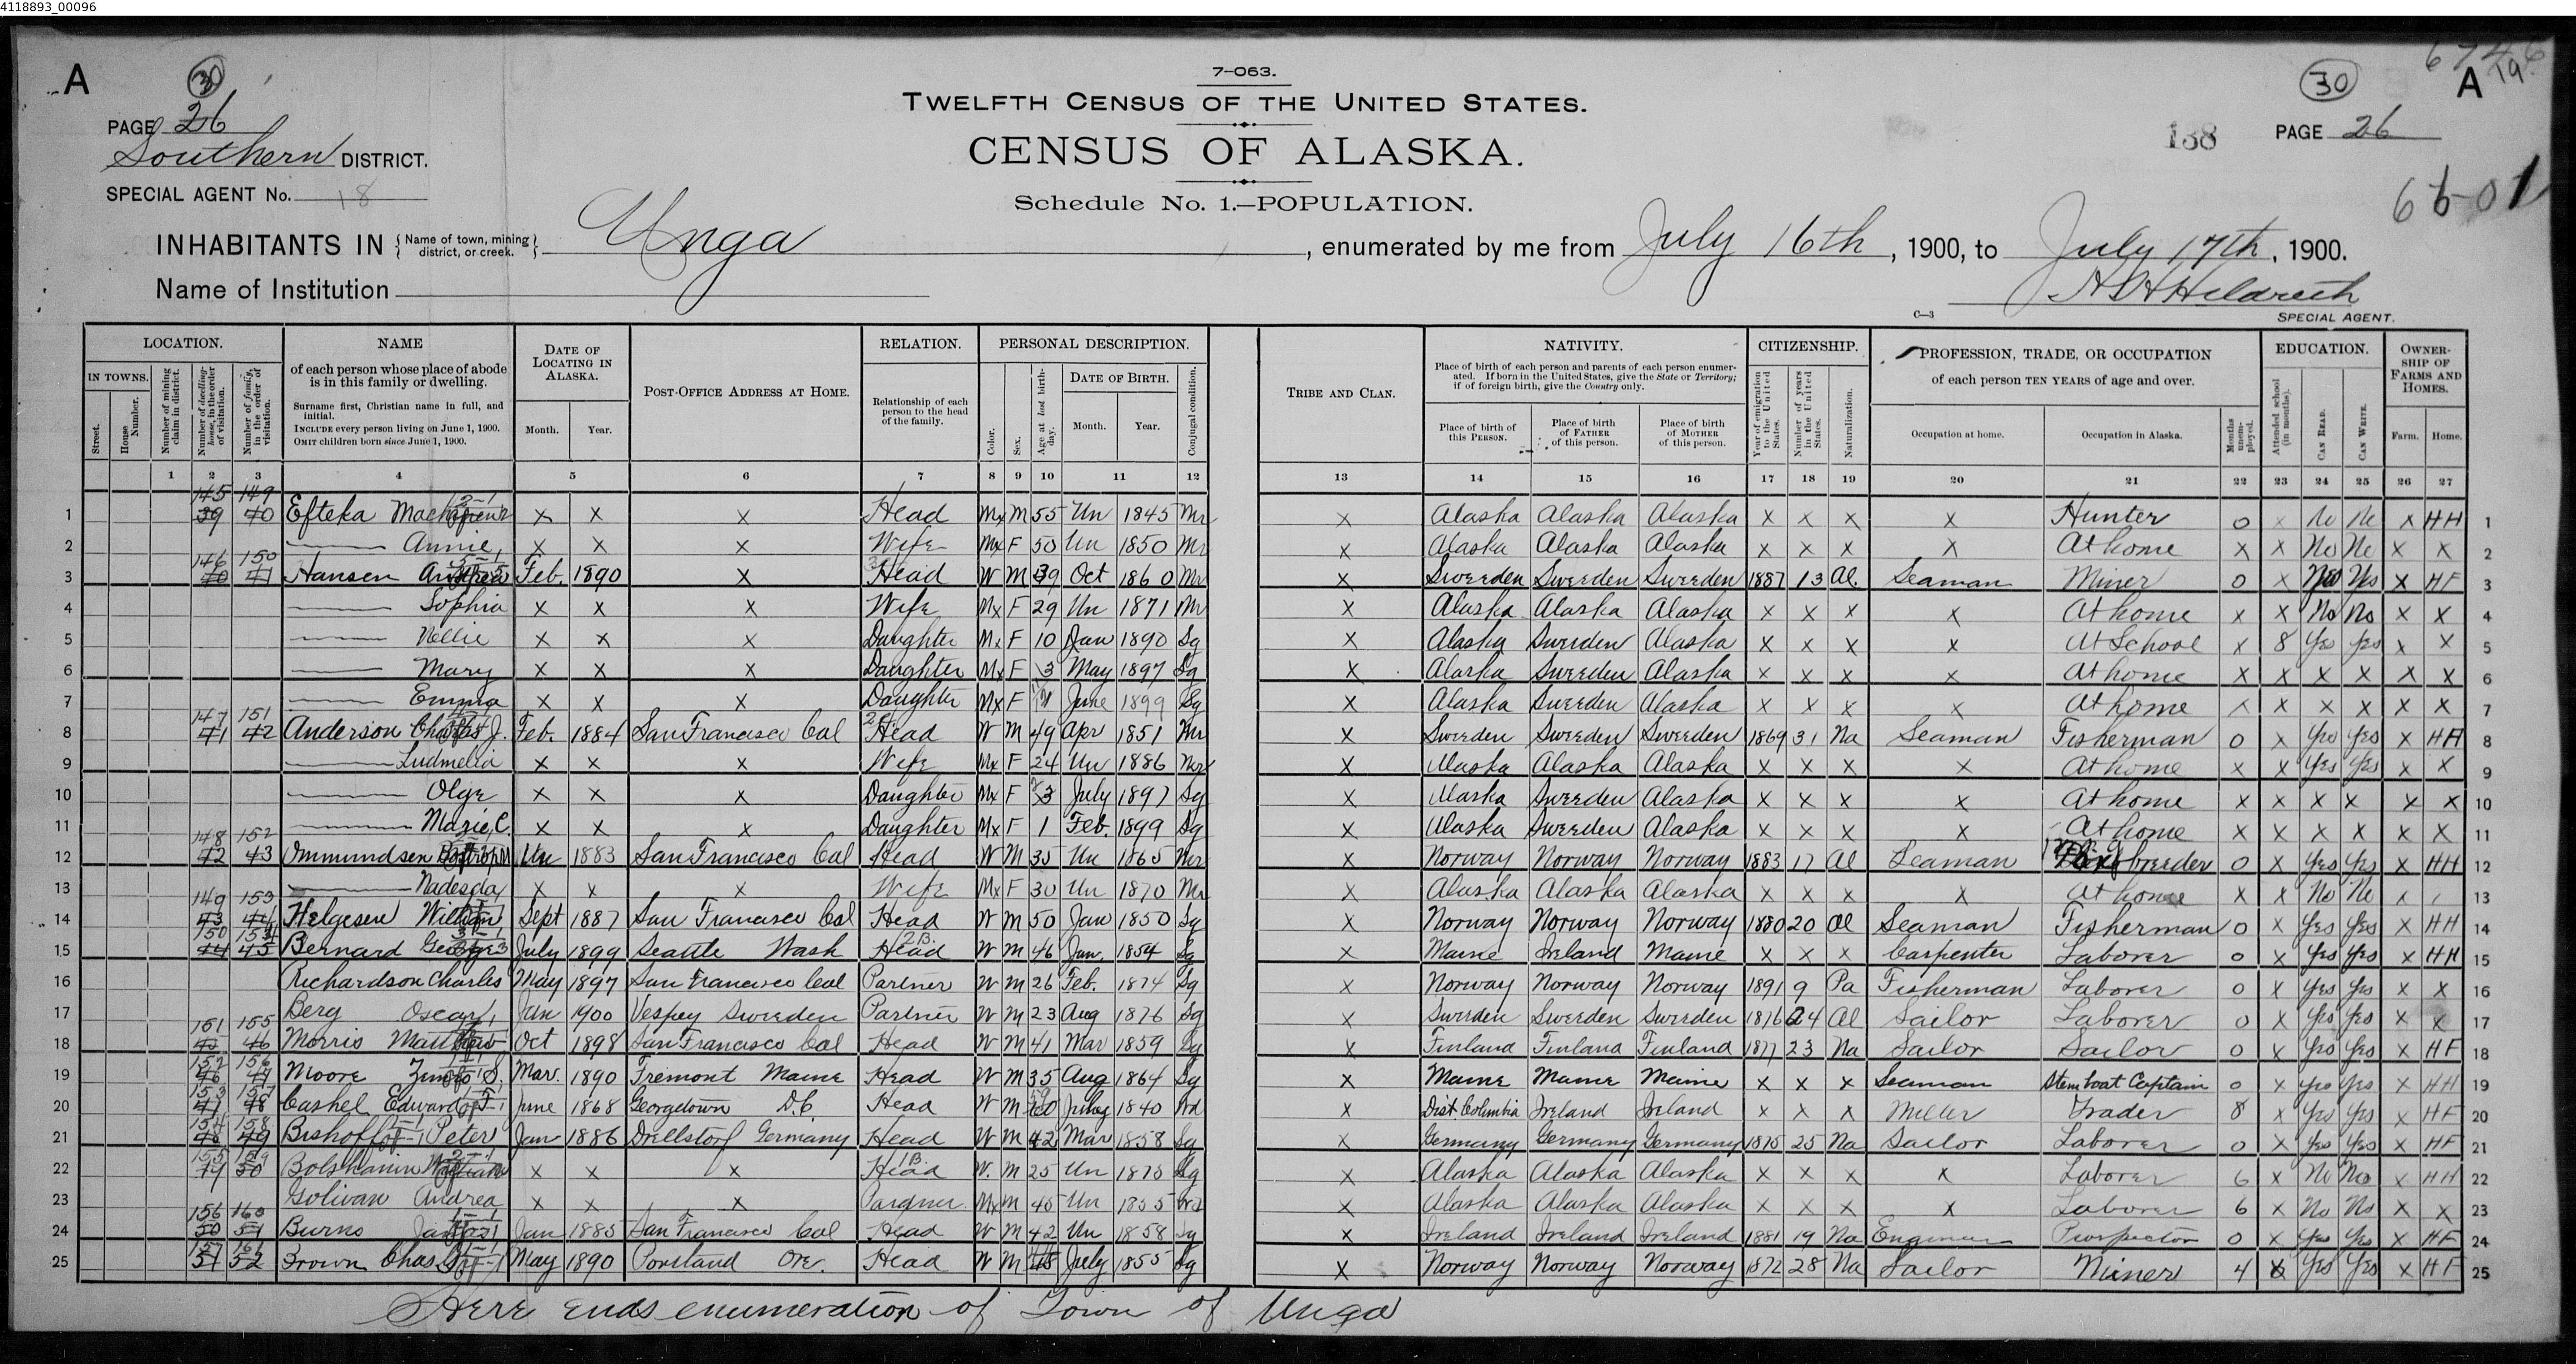 4118893_00096
A
30
PAGE 26
Southern DISTRICT.
SPECIAL AGENT No. 18
7-063.
TWELFTH CENSUS OF THE UNITED STATES.
CENSUS OF ALASKA.
Schedule No. 1.—POPULATION.
138
30
A
19
PAGE 26
INHABITANTS IN {Name of town, mining district, or creek.} Unga, enumerated by me from July 16th, 1900, to July 17th, 1900.
Name of Institution
C—3
SPECIAL AGENT.
LOCATION. NAME DATE OF LOCATING IN ALASKA. POST-OFFICE ADDRESS AT HOME. RELATION. PERSONAL DESCRIPTION. TRIBE AND CLAN. NATIVITY. CITIZENSHIP. PROFESSION, TRADE, OR OCCUPATION EDUCATION. OWNERSHIP OF FARMS AND HOMES.
IN TOWNS. Street. House Number. Number of mining claim in district. Number of dwelling-house, in the order of visitation. Number of family, in the order of visitation.
of each person whose place of abode is in this family or dwelling.
Surname first, Christian name in full, and initial.
INCLUDE every person living on June 1, 1900.
OMIT children born since June 1, 1900.
Month. Year.
Relationship of each person to the head of the family.
Color. Sex. Age at last birthday. DATE OF BIRTH. Month. Year. Conjugal condition.
Place of birth of each person and parents of each person enumerated. If born in the United States, give the State or Territory; if of foreign birth, give the Country only.
Place of birth of this PERSON. Place of birth of FATHER of this person. Place of birth of MOTHER of this person.
Year of emigration to the United States. Number of years in the United States. Naturalization.
of each person TEN YEARS of age and over.
Occupation at home. Occupation in Alaska. Months unemployed.
Attended school (in months). CAN READ. CAN WRITE. Farm. Home.
1 2 3 4 5 6 7 8 9 10 11 12 13 14 15 16 17 18 19 20 21 22 23 24 25 26 27
1 145 149 39 40 Efteka X X X Head Mx M 55 Un 1845 Mr X Alaska Alaska Alaska X X X X Hunter 0 X No No X HH 1
2 Annie X X X Wife Mx F 50 Un 1850 Mr X Alaska Alaska Alaska X X X X At home X X No No X X 2
3 146 150 40 41 Hansen Andrew Feb. 1890 X Head W M 39 Oct 1860 Mr X Sweeden Sweeden Sweeden 1887 13 Al. Seaman Miner 0 X Yes Yes X HF 3
4 Sophia X X X Wife Mx F 29 Un 1871 Mr X Alaska Alaska Alaska X X X X At home X X No No X X 4
5 Nellie X X X Daughter Mx F 10 Jan 1890 Sg X Alaska Sweeden Alaska X X X X At School X 8 Yes Yes X X 5
6 Mary X X X Daughter Mx F 3 May 1897 Sg X Alaska Sweeden Alaska X X X X At home X X X X X X 6
7 Emma X X X Daughter Mx F 1 June 1899 Sg X Alaska Sweeden Alaska X X X X At home X X X X X X 7
8 147 151 41 42 Anderson Charles J. Feb. 1884 San Francisco Cal Head W M 49 Apr 1851 Mr X Sweeden Sweeden Sweeden 1869 31 Na Seaman Fisherman 0 X Yes Yes X HH 8
9 Ludmelia X X X Wife Mx F 24 Un 1886 Mr X Alaska Alaska Alaska X X X X At home X X Yes Yes X X 9
10 Olga X X X Daughter Mx F 3 July 1897 Sg X Alaska Sweeden Alaska X X X X At home X X X X X X 10
11 Mazie C. X X X Daughter Mx F 1 Feb. 1899 Sg X Alaska Sweeden Alaska X X X X At home X X X X X X 11
12 148 152 42 43 Ommundsen Un 1883 San Francisco Cal Head W M 35 Un 1865 Mr X Norway Norway Norway 1883 17 Al Seaman breeder 0 X Yes Yes X HH 12
13 Nadesda X X X Wife Mx F 30 Un 1870 Mr X Alaska Alaska Alaska X X X X At home X X No No X 13
14 149 153 43 44 Helgesen William Sept 1887 San Francisco Cal Head W M 50 Jan 1850 Sg X Norway Norway Norway 1880 20 Al Seaman Fisherman 0 X Yes Yes X HH 14
15 150 154 44 45 Bernard George July 1899 Seattle Wash Head W M 46 Jan. 1854 Sg X Maine Ireland Maine X X X Carpenter Laborer 0 X Yes Yes X HH 15
16 Richardson Charles May 1897 San Francisco Cal Partner W M 26 Feb. 1874 Sg X Norway Norway Norway 1891 9 Pa Fisherman Laborer 0 X Yes Yes X X 16
17 Berg Oscar Jan 1900 Vespey Sweeden Partner W M 23 Aug 1876 Sg X Sweeden Sweeden Sweeden 1876 24 Al Sailor Laborer 0 X Yes Yes X X 17
18 151 155 45 46 Morris Matthew Oct 1898 San Francisco Cal Head W M 41 Mar 1859 Sg X Finland Finland Finland 1877 23 Na Sailor Sailor 0 X Yes Yes X HF 18
19 152 156 46 47 Moore S. Mar. 1890 Fremont Maine Head W M 35 Aug 1864 Sg X Maine Maine Maine X X X Seaman Stemboat Captain 0 X Yes Yes X HH 19
20 153 157 47 48 Cashel Edward June 1868 Georgetown D.C. Head W M 1840 Wd X Dist Columbia Ireland Ireland X X X Miller Trader 8 X Yes Yes X HF 20
21 154 158 48 49 Bishoff Peter Jan 1886 Drellstorf Germany Head W M 42 Mar 1858 Sg X Germany Germany Germany 1875 25 Na Sailor Laborer 0 X Yes Yes X HF 21
22 155 159 49 50 Bolshanin X X X Head W. M 25 Un 1875 Sg X Alaska Alaska Alaska X X X X Laborer 6 X No No X HH 22
23 Golivan Andrea X X X Pardner Mx M 45 Un 1855 Wd X Alaska Alaska Alaska X X X X Laborer 6 X No No X X 23
24 156 160 50 51 Burns James Jan 1885 San Francisco Cal Head W M 42 Un 1858 Sg X Ireland Ireland Ireland 1881 19 Na Engineer Prospector 0 X Yes Yes X HF 24
25 157 161 51 52 Brown Chas May 1890 Portland Ore. Head W M 45 July 1855 Sg X Norway Norway Norway 1872 28 Na Sailor Miner 4 X Yes Yes X HF 25
Here ends enumeration of Town of Unga